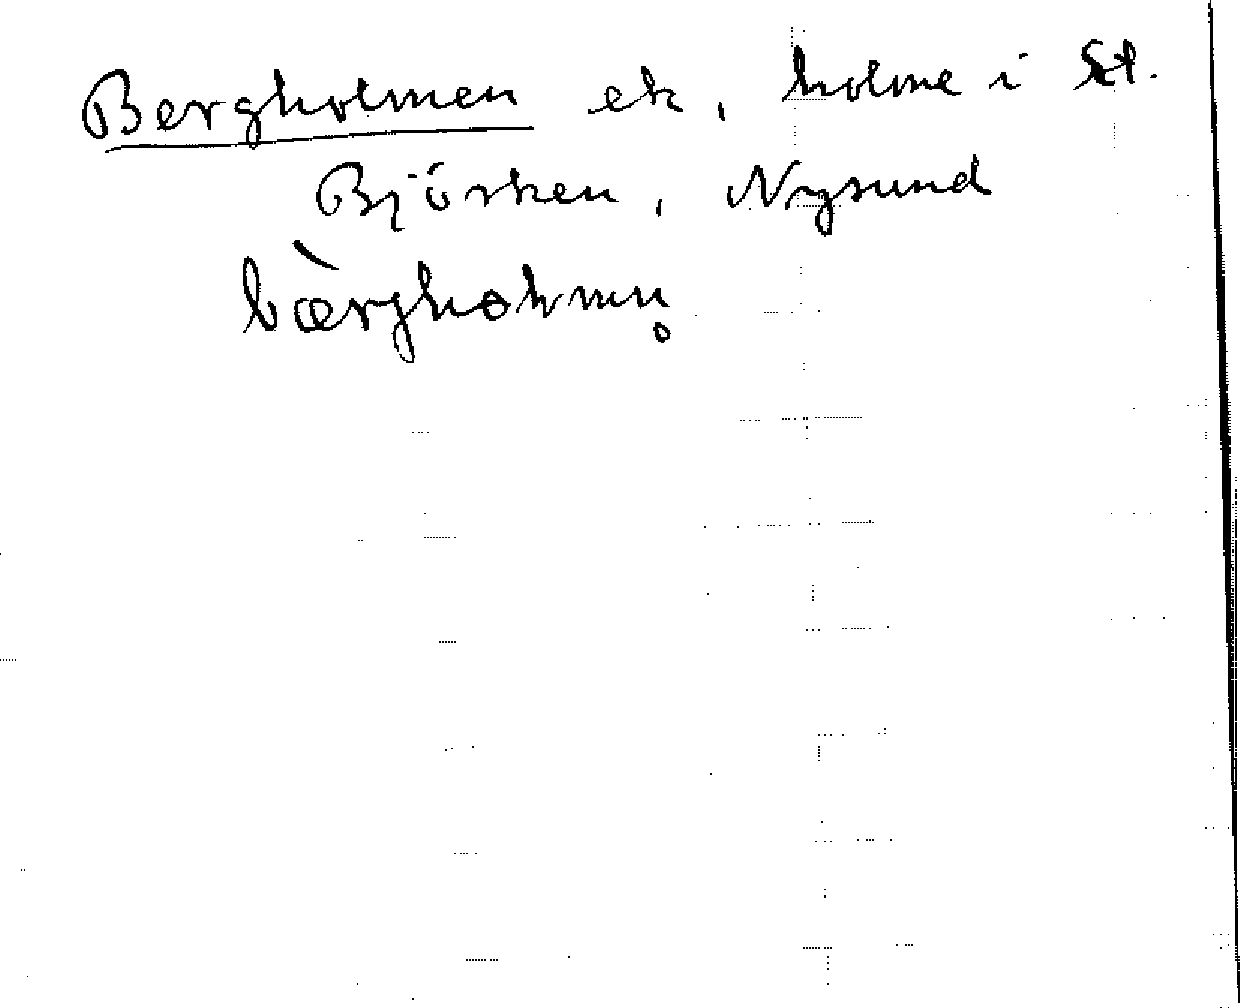 Bergholmen ek, holme i St.
Björken, Nysund
bæ̀rghɵlmn̥